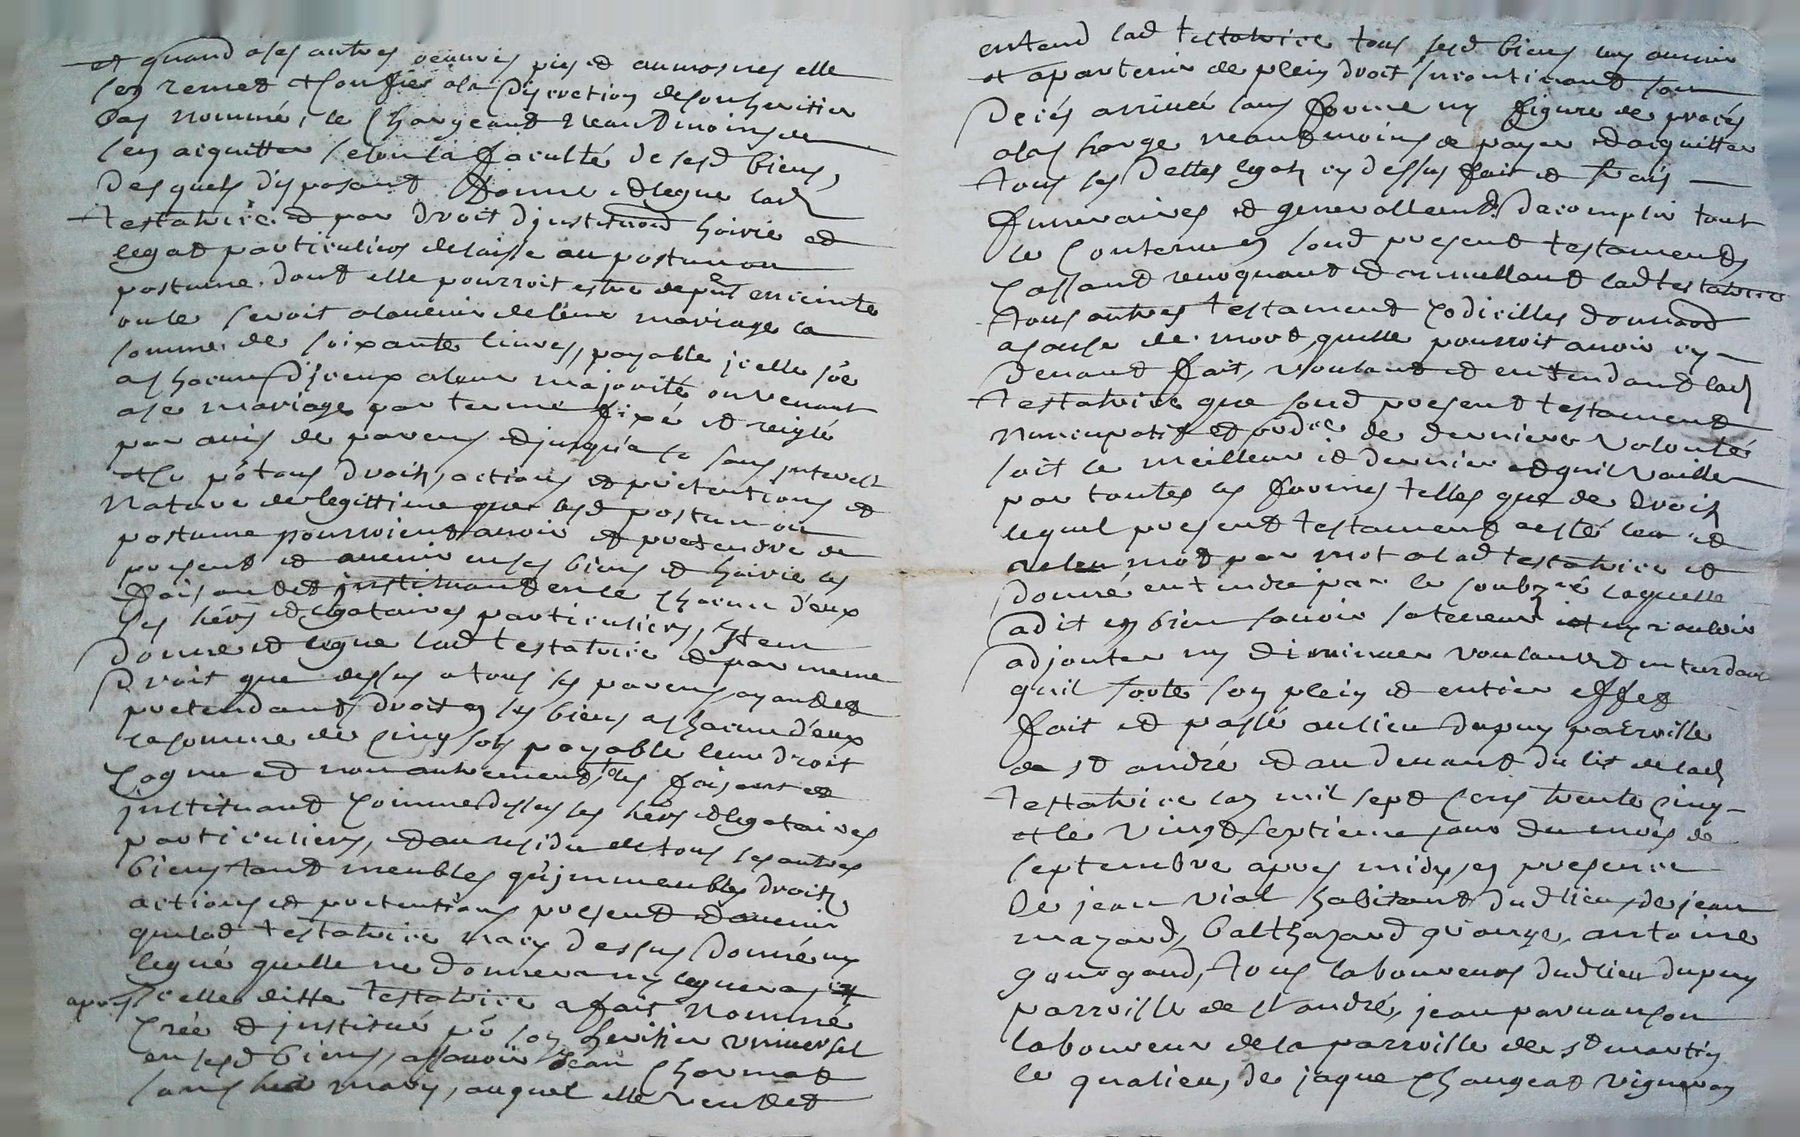 et quand a ses autres oeuvres pies et aumosnes elle
les remet et confie a la discretion de son heritier
bas nommé, le chargeant neantmoins de
les acquitter selon la faculté de sesd biens,
desquels disposant donne et legue lad
testatrice et par droit d'jnstitution hoirie et
legat particuliers delaisse au postume ou
postume dont elle pourroit estre de pnt enceinte
ou le seroit a lavenir de leur mariage la
somme de soixante livres, payable jcelle some
a chacun d'jceux a leur majorité ou venant
a se mariage par terme fixé et reiglé
par avis de parens et jusqu'a ce sans jnterest
et ce po tous droits, actions et pretentions et
nature de legittime que lesd postum ou
postume pourroient avoir et pretendre de
present et avenir en ses biens et hoirie les
faisant et jnstituant en ce chacun d'eux
ses hers et legataires particuliers, Jtem
donne et legue lad testatrice et par meme
droit que dessus a tous ses parens ayant et
pretendant droit en ses biens a chacun d'eux
la somme de cinq sols payable leur droit
cognu et non autrement, les faisant et
jnstituant comme dessus ses hers et legataires
particuliers, et au residu de tous ses autres
biens tant meubles qu'jmmeubles droits,
actions et pretentions present et avenir
que lad testatrice n'a cy dessus donné ny
legué quelle ne donnera ny leguera cy
apres jcelle ditte testatrice a fait nommé
créé et jnstitué po son heritier universel
en sesd biens, assavoir Jean Chormat
sond mary, auquel elle veut et
entend lad testatrice tous sesd biens luy avenir
et apartenir de plein droit jncontinant son
decés arrivé sans forme ny figure de procés
a la charge neantmoins de payer et acquitter
tous ses dettes legats cy dessus fait et frais
funeraires et generallement d'acomplir tout
le contenu en sond present testament
cassant revoquant et annullant lad testatrice
tous autres testament codicilles donnaon
a cause de mort, quelle pourroit avoir cy
devant fait, voulant et entendant lad
testatrice que sond present testament
nuncupatif et ordce de derniere volonté
soit le meilleur et dernier et quil vaille
par toutes les formes telles que de droit
lequel present testament a esté leu et
releu mot par mot a lad testatrice et
donné entendre par le soubzné laquelle
a dit en bien savoir la teneur et ny vouloir
adjouter ny diminuer voulant et entendant
quil sorte son plein et entier effet
fait et passé au lieu dupuy parroisse
de st andré et au devant du lit de lad
testatrice lan mil sept cens trente cinq
et le vingt septieme jour du mois de
septembre apres midy, en presence
de jean vial habitant dud lieu, de jean
mazard, balthazard grange, antoine
gourgaud, tous laboureurs dud lieu dupuy
parroisse de st andré, jean parvançon
laboureur de la parroisse de st martin
le qualieu, de jaque changeat vigneron